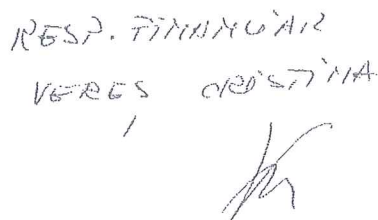 RESP. FINANCIAR
VEREŞ CRISTINA